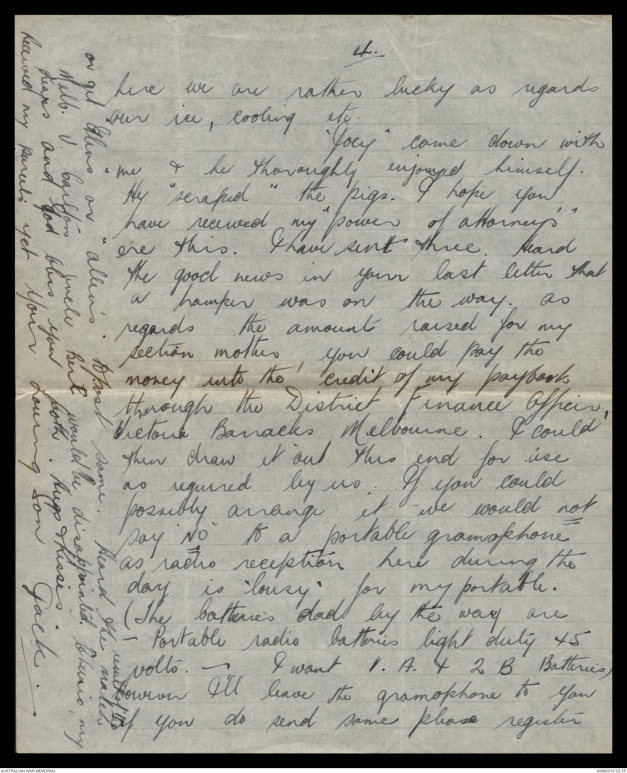 4.
here we are rather lucky as regards
our ice, cooling etc.
"Joey" came down with
me & he thoroughly enjoyed himself.
He "scraped" the pigs. I hope you
have received my "power of attorney's"
ere this. I have sent three. Heard
the good news in your last letter that
a hamper was on the way. as
regards the amount raised for my
section mother, you could pay the
money into the credit of my paybook
through the District Finance Officer,
Victoria Barracks Melbourne. I could
then draw it out this end for use
as required by us. If you could
possibly arrange it we would not
say "NO" to a portable gramophone
as radio reception here during the
day is "lousy" for my portable.
(The batteries dad by the way are
Portable radio batteries light duty 45
volts. — I want 1. A. & 2 B Batteries)
however I'll leave the gramophone to you
if you do send same please register
or get Glens or "allen's. to post same. Heard the results of the
Melb. v. Carlton match but would be disappointed. Cheerio my
dears and God bless you both. Hugs & kisses.
received my parcels yet Your loving Son Jack.